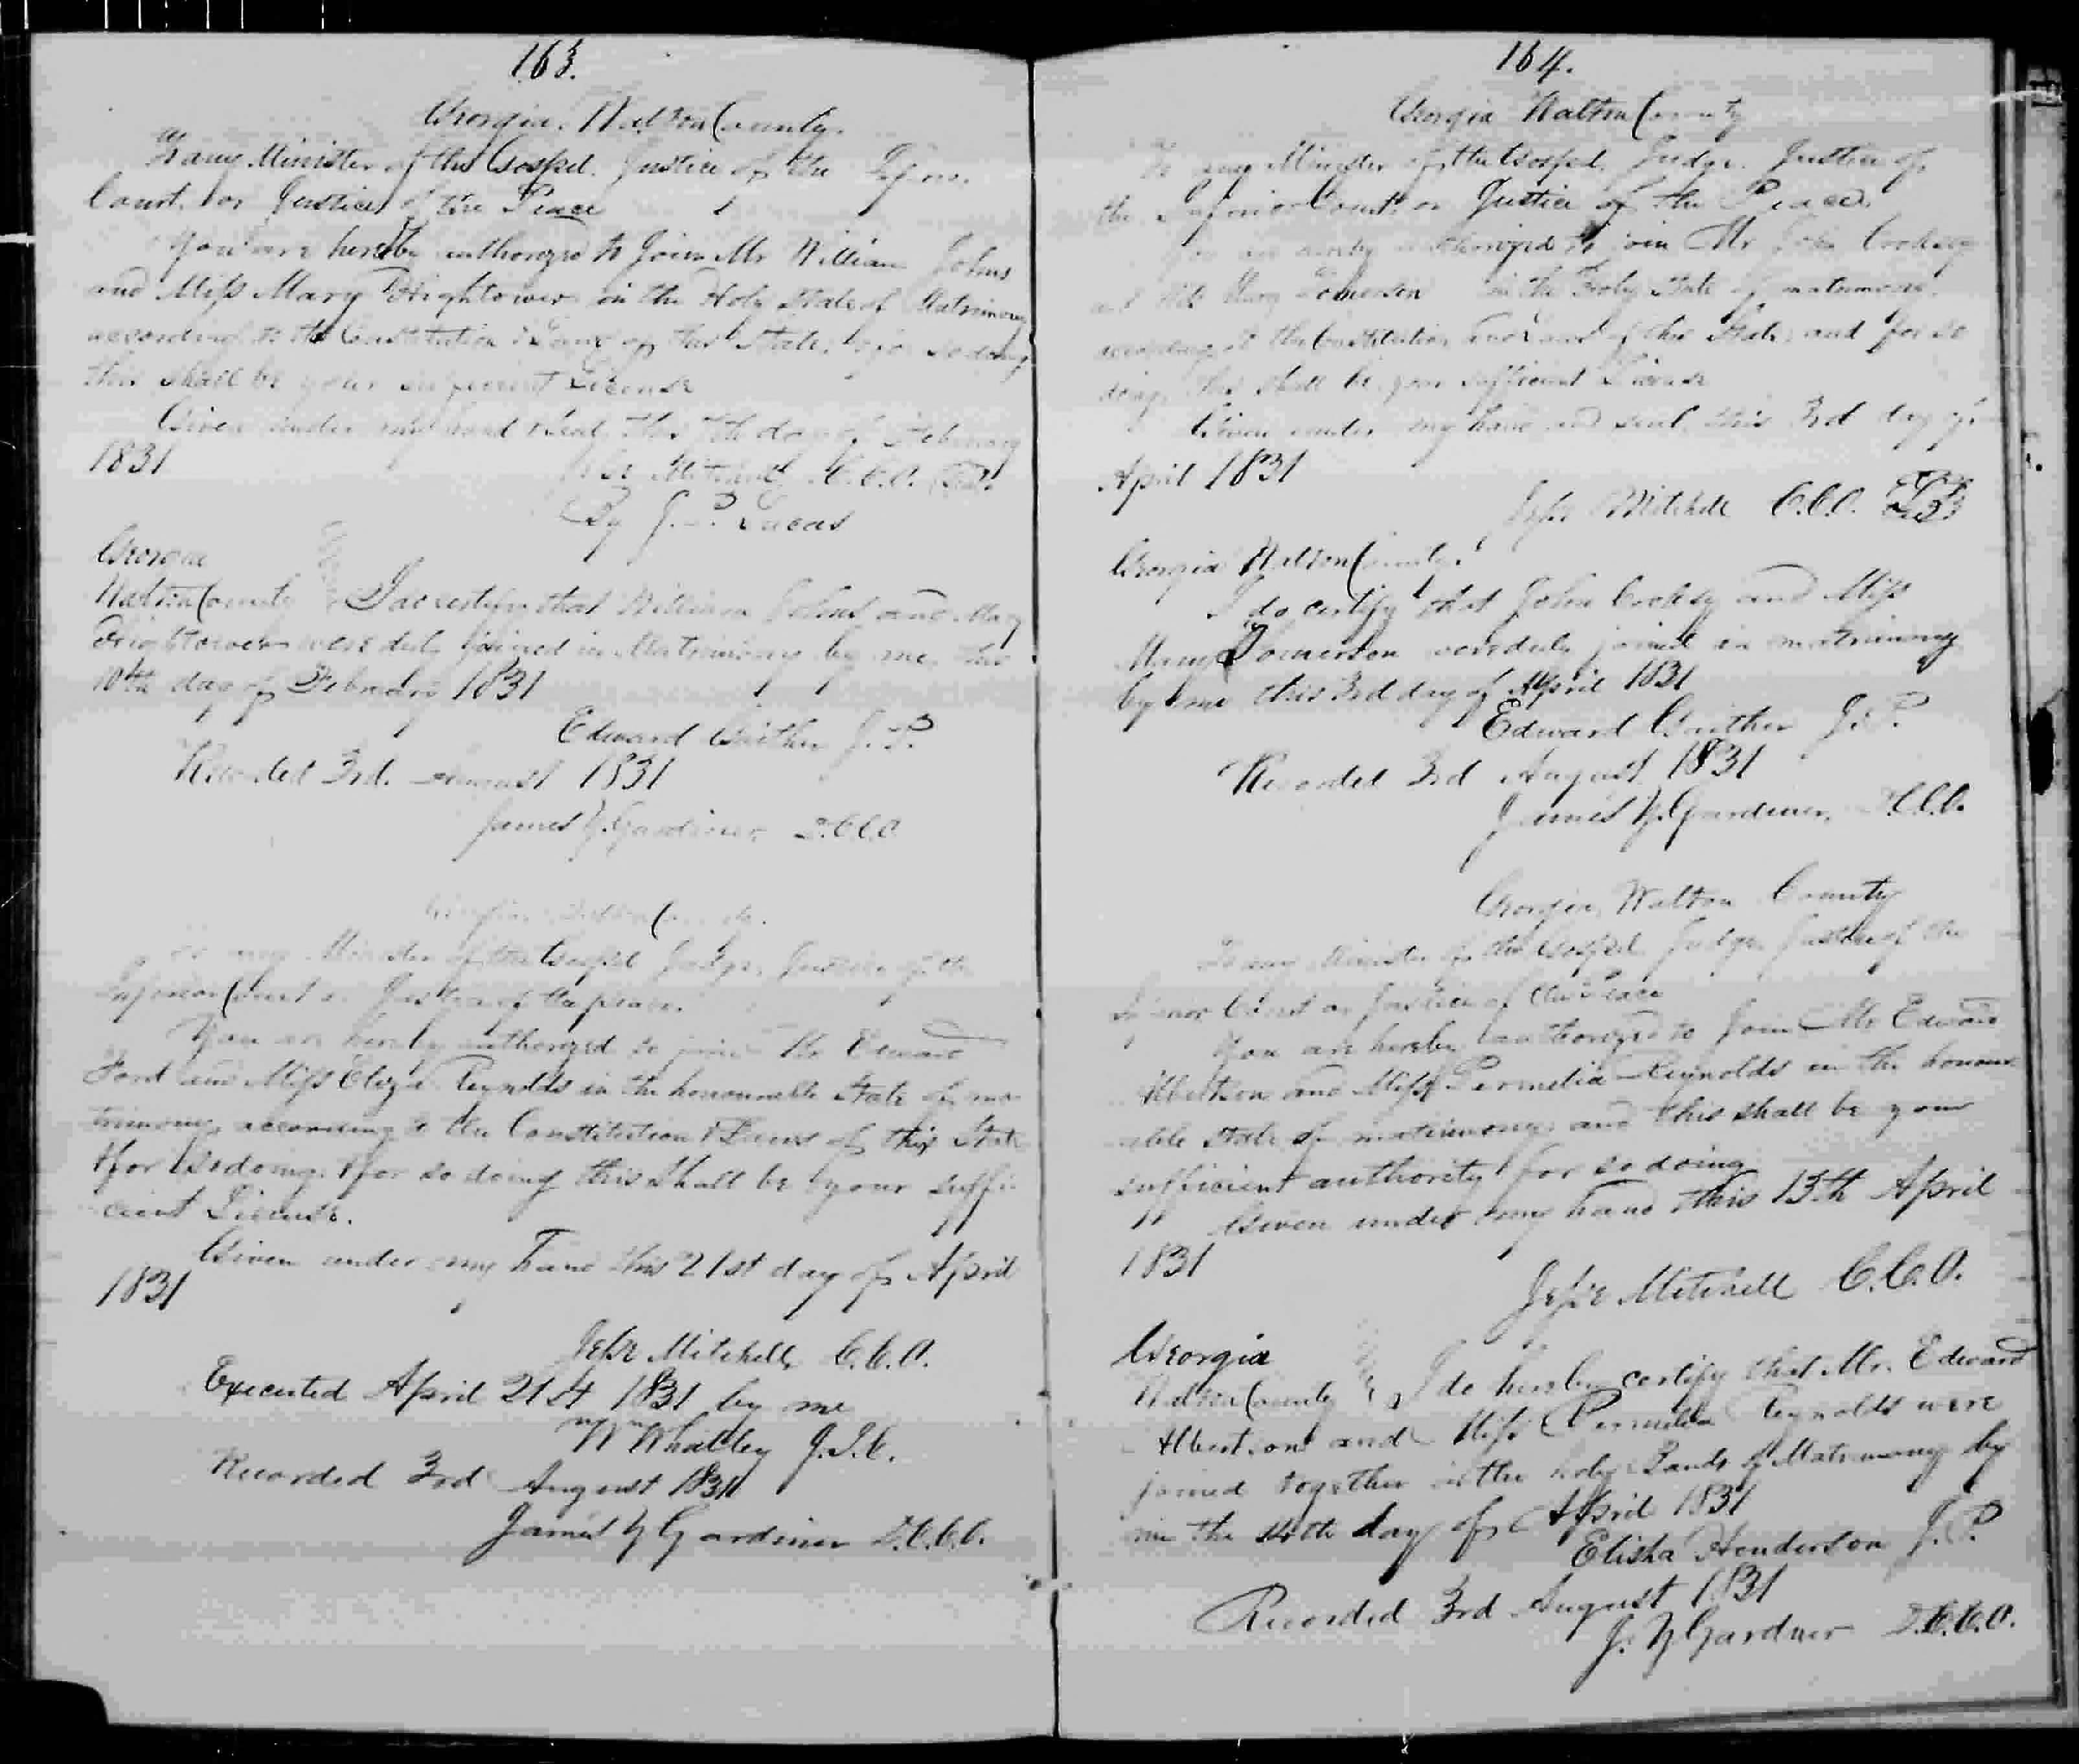 163.
Georgia. Walton County.
To any Minister of the Gospel. Justice of the Infr.
Court. or Justice of the Peace
You are hereby authorized to join Mr William Johns
and Miss Mary Hightower in the Holy State of Matrimony
according to the Constitution & Laws of this State. & for so doing
this shall be your sufficient License
Given under my hand & seal, this 7th day of February
1831
Mitchell C.C.O.
By J. P. Lucas
Georgia
Walton County I do certify that William Johns and Mary
Hightower were duly joined in Matrimony by me this
10th day of February 1831
Edward Gaither J. P.
Recorded 3rd. August 1831
James Y. Gardiner D.C.C.O
Georgia Walton County.
To any Minister of the Gospel Judge, Justice of the
Inferior Court or Justice of the peace.
You are hereby authorized to join Mr Edward
Ford and Miss Eliza Reynolds in the honourable State of ma
trimony according to the Constitution & Laws of this State
& for so doing & for so doing this shall be your suffi
cient License.
Given under my hand this 21st day of April
1831
Jesse Mitchell, C.C.O.
Executed April 21st 1831 by me
Wm Whatley J.I.C.
Recorded 3rd August 1831
James Y Gardiner D.C.C.O.
164.
Georgia Walton County
To any Minister of the Gospel, Judge. Justice of
the Inferior Court or Justice of the Peace.
You are hereby authorized to join Mr John Cooksey
and Miss Mary in the Holy State of matrimony
according to the Constitution and Laws of this State, and for so
doing, this shall be your sufficient License
Given under my hand and seal this 3rd day of
April 1831
Jesse Mitchell C.C.O.
Georgia Walton County.
I do certify that John Cooksey and Miss
Mary were duly joined in matrimony
by me this 3rd day of April 1831
Edward Gaither J. P.
Recorded 3rd August 1831
James Y. Gardiner, D.C.C.O.
Georgia, Walton County
To any Minister of the Gospel Judge, Justice of the
Inferior Court or Justice of the Peace
You are hereby authorized to join Mr Edward
Albertson and Miss Permelia Reynolds in the honour
able State of matrimony and this shall be your
sufficient authority for so doing
Given under my hand this 13th April
1831
Jesse Mitchell C.C.O.
Georgia
Walton County I do hereby certify that Mr. Edward
Albertson and Miss Permelia Reynolds were
joined together in the holy Bands of Matrimony by
me the 14th day of April 1831
Elisha Henderson J. P.
Recorded 3rd August 1831
J. Y Gardner D.C.C.O.